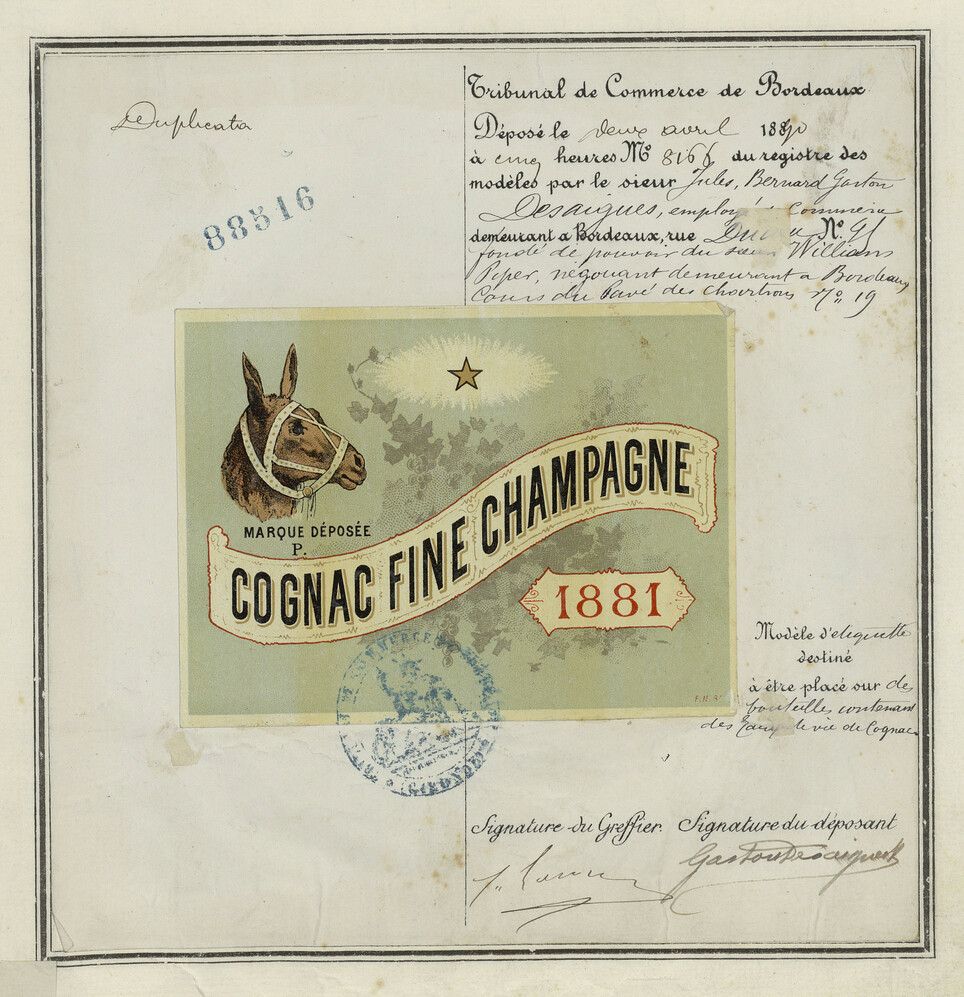 Duplicata
88516
Tribunal de Commerce de Bordeaux
Déposé le deux avril 1890
à cinq heures Nº 8166 du registre des
modèles par le sieur Jules, Bernard Gaston
Desaigues, employé Commerce
demeurant a Bordeaux, rue Nº 91
fondé de pouvoir du sieur Williams
Piper, négociant demeurant a Bordeaux
Cours du Pavé des Chartrons Nº 19
MARQUE DÉPOSÉE
P.
COGNAC FINE CHAMPAGNE
1881
Modèle d'etiquette
destiné
à être placé sur des
bouteilles contenant
des Eaux de vie de Cognac
COMMERCE
GIRONDE
Signature du Greffier. Signature du déposant